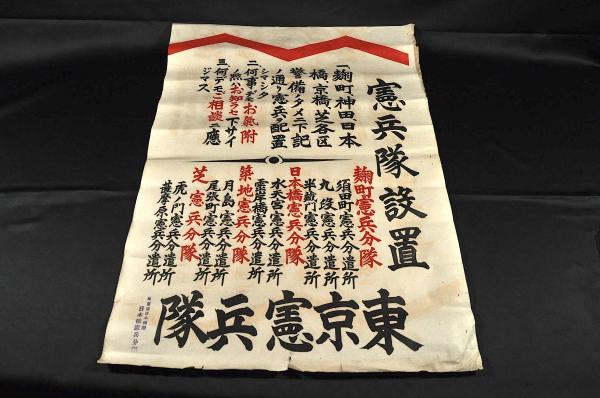 憲兵隊設置
一、麹町、神田、日本
橋、京橋、芝各区
警備ノタメ二下記
ノ通リ憲兵ヲ配置
シマシタ
二、何事デモお氣附
ノ點ハお知ラセ下サイ
三、何デモご相談ニ應
ジマス
麹町憲兵分隊
須田町憲兵分遣所
丸ノ内憲兵分遣所
半蔵門憲兵分遣所
日本橋憲兵分隊
水天宮憲兵分遣所
霊岸橋憲兵分遣所
築地憲兵分隊
月島憲兵分遣所
尾張町憲兵分遣所
芝憲兵分隊
虎ノ門憲兵分遣所
薩摩原憲兵分遣所
東京憲兵隊
日本橋憲兵分